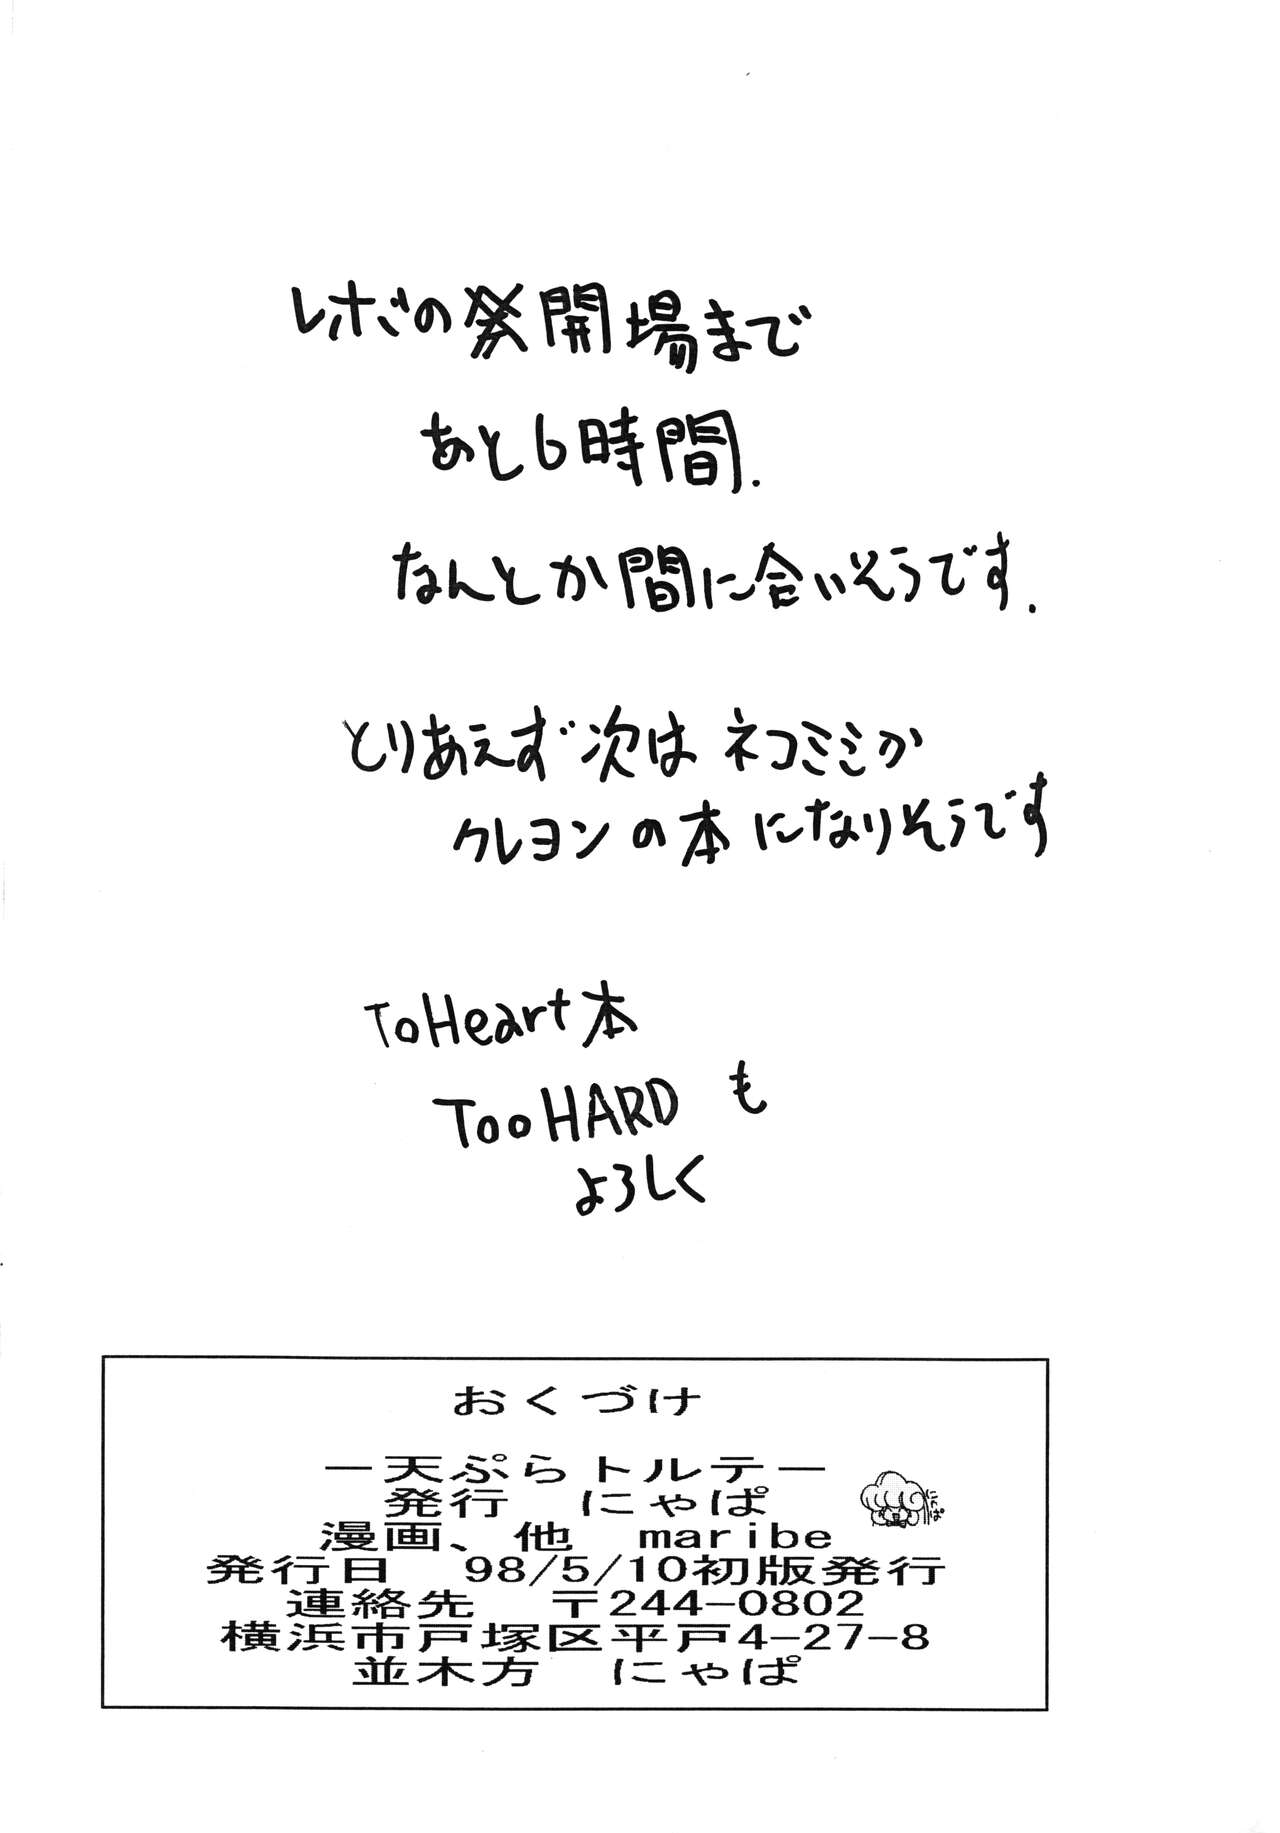 レボの開場まで
あと6時間.
なんとか間に合いそうです.
とりあえず次は ネコミミか
クレヨンの本になりそうです
ToHeart本
TooHARD も
よろしく
おくづけ
ー天ぷらトルテー
発行 にゃぱ
にゃぱ
漫画、他 maribe
発行日 98/5/10初版発行
連絡先 〒244-0802
横浜市戸塚区平戸4-27-8
並木方 にゃぱ